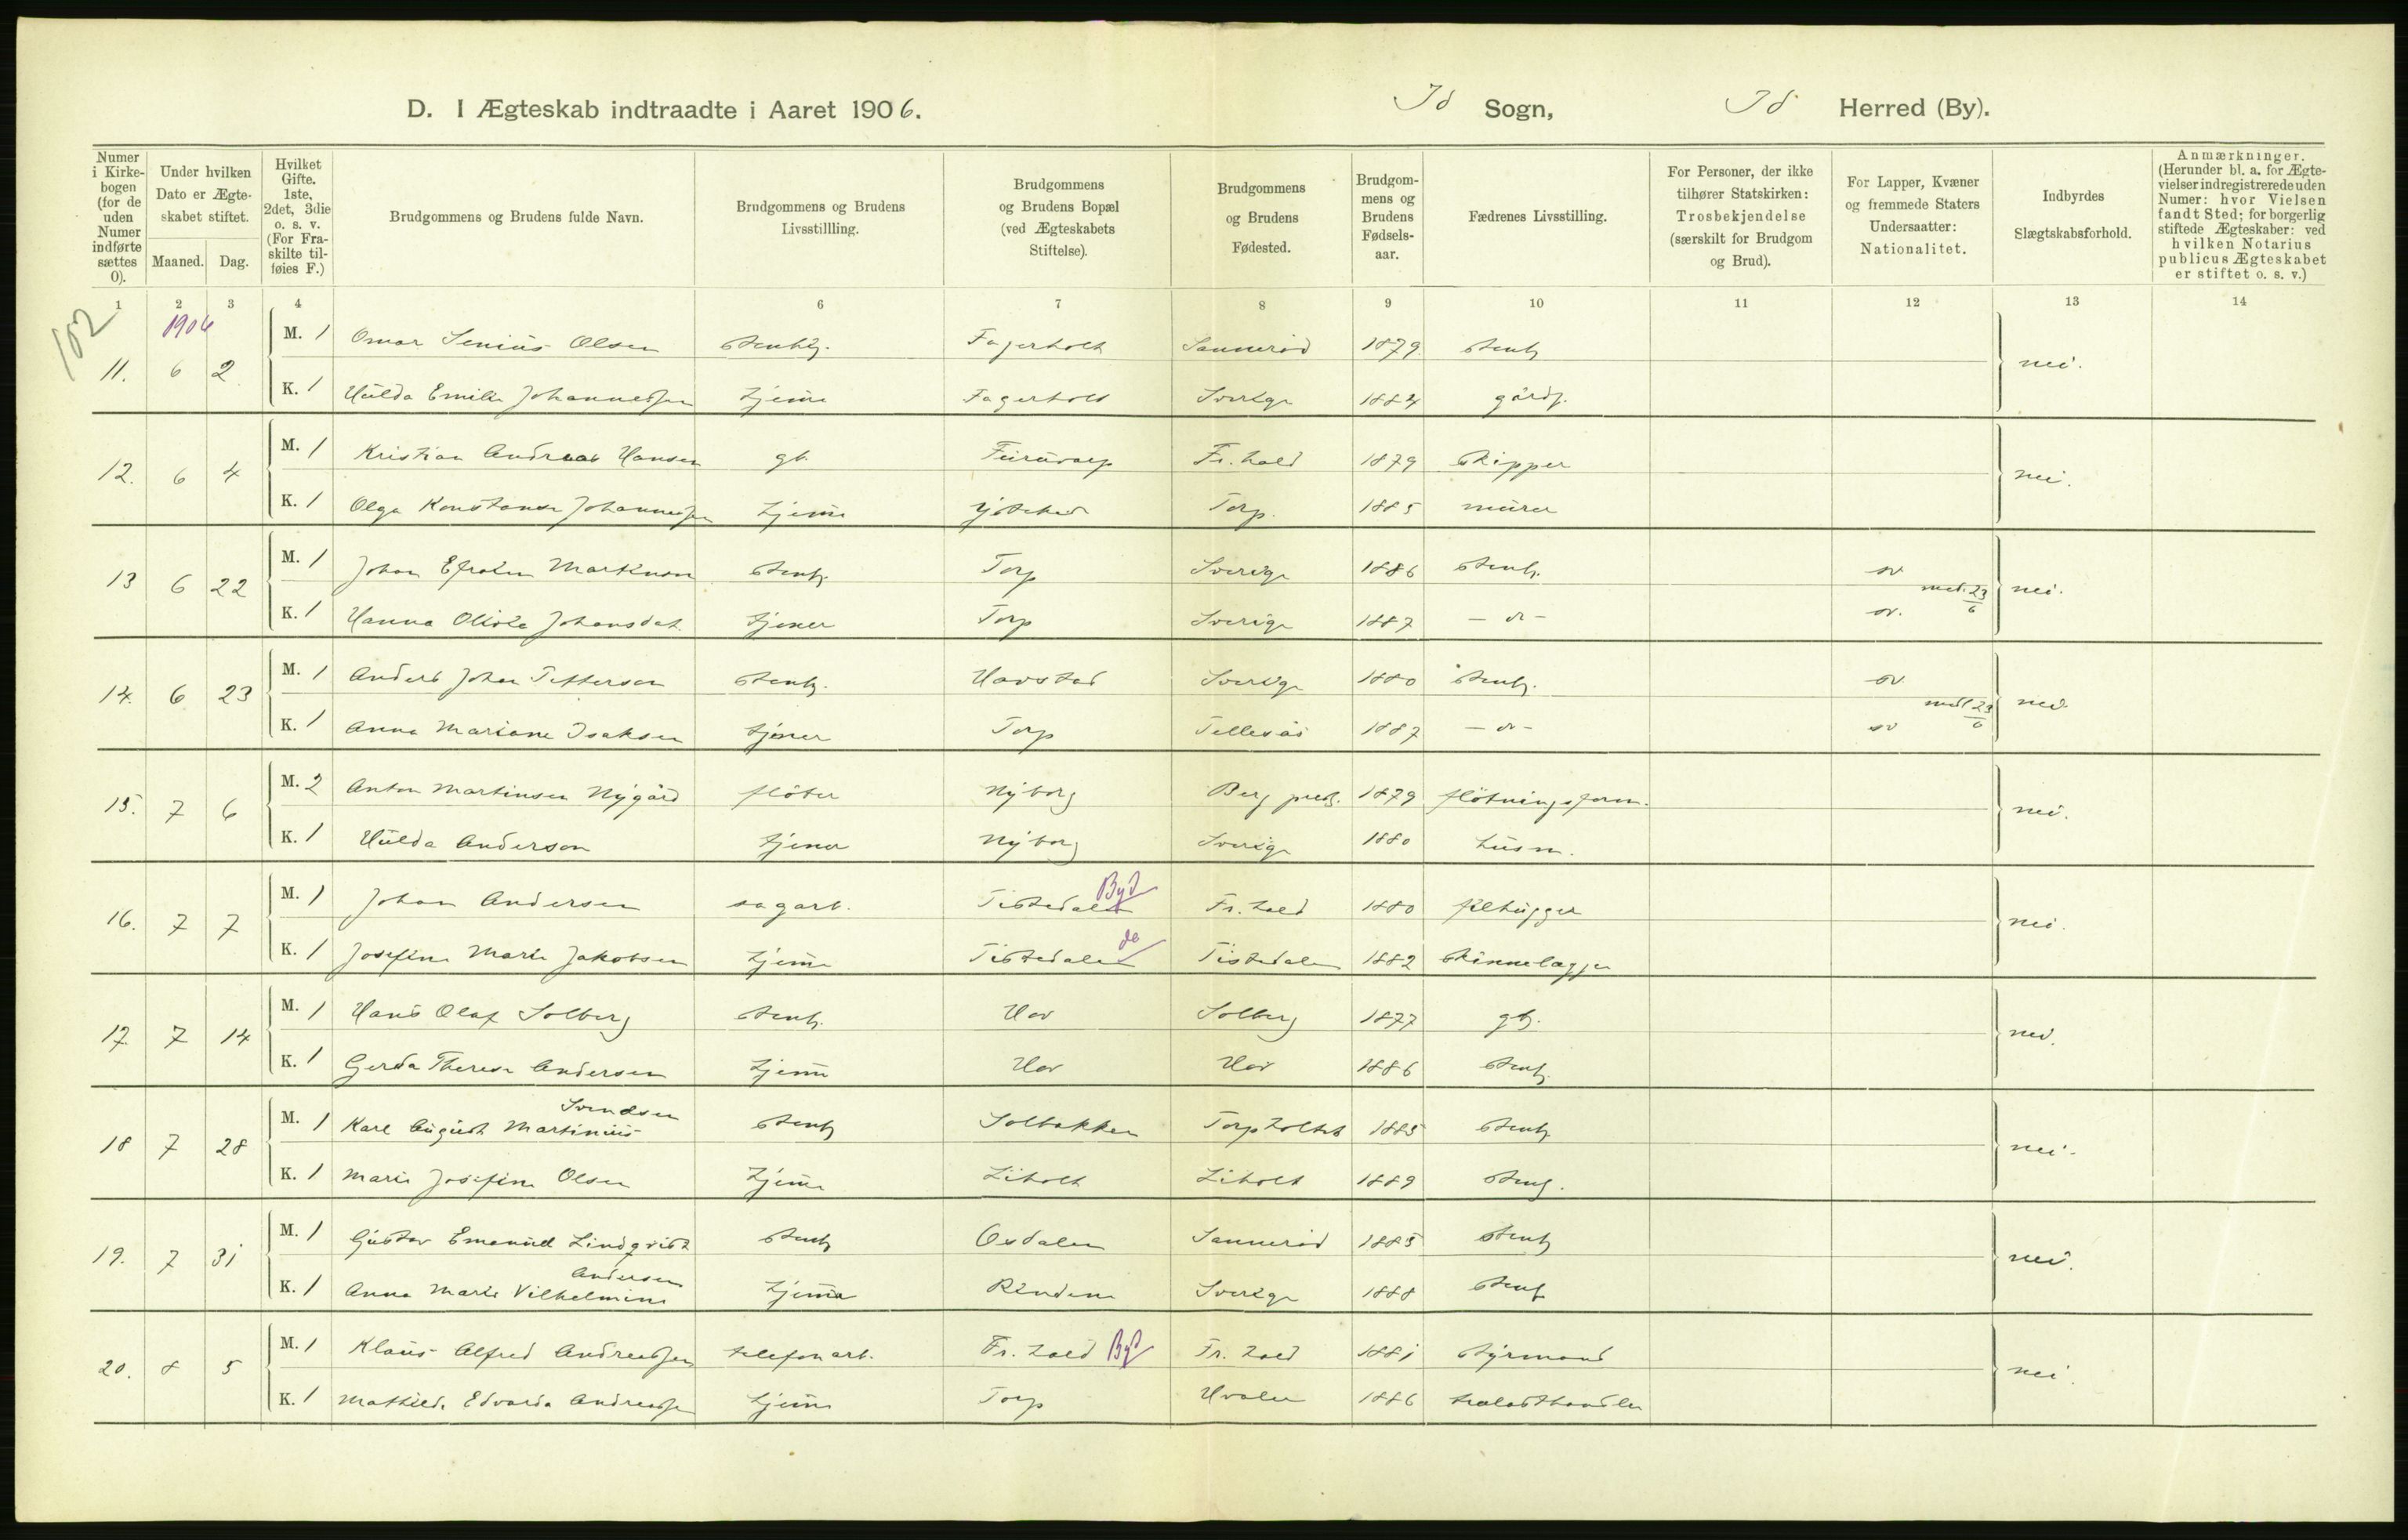 D. I Ægteskab indtraadte i Aaret 1906. Id Sogn, Id Herred (By).
Numer i Kirkebogen (for de uden Numer indførte sættes 0).
Under hvilken Dato er Ægteskabet stiftet.
Maaned. Dag.
Hvilket Gifte. 1ste, 2det, 3die o. s. v. (For Fraskilte tilføies F.)
Brudgommens og Brudens fulde Navn.
Brudgommens og Brudens Livsstillling.
Brudgommens og Brudens Bopæl (ved Ægteskabets Stiftelse).
Brudgommens og Brudens Fødested.
Brudgommens og Brudens Fødselsaar.
Fædrenes Livsstilling.
For Personer, der ikke tilhører Statskirken: Trosbekjendelse (særskilt for Brudgom og Brud).
For Lapper, Kvæner og fremmede Staters Undersaatter: Nationalitet.
Indbyrdes Slægtskabsforhold.
Anmærkninger. (Herunder bl. a. for Ægtevielser indregistrerede uden Numer: hvor Vielsen fandt Sted; for borgerlig stiftede Ægteskaber: ved hvilken Notarius publicus Ægteskabet er stiftet o. s. v.)
1 2 3 4 6 7 8 9 10 11 12 13 14
102 1906
M. 1 Omar Senius Olsen stenh. Fagerholt Sannerød 1879 stenh
11. 6 2 nei.
K. 1 Hulda Emilie Johannessen hjemme Fagerholt Sverige 1884 gårdj.
M. 1 Kristian Andreas Hansen gb. Fr.hald 1879 skipper
12. 6 4 nei.
K. 1 Olga Konstanse Johannessen hjemme Torp. 1885 murer
M. 1 Johan Efraim Markuson stenh. Torp Sverige 1886 stenh. sv
13 6 22 med. 23/6 nei.
K. 1 Hanna Johansdat. tjener Torp Sverige 1887 – do – sv.
M. 1 Anders Johan Pettersen stenh. Havstad Sverige 1880 stenh. sv
14. 6 23 medl 23/6 nei.
K. 1 Anna Mariane Isaksen tjener Torp 1887 – do – sv
M. 2 Anton Martinsen Nygård fløter Nyborg Berg pred. 1879 fløtningsform.
15. 7 6 nei.
K. 1 Hulda Anderson tjener Nyborg Sverige 1880 husm.
M. 1 Johan Andersen sagarb. Tistedalen Byd Fr.hald 1880 filhugger
16. 7 7 nei.
K. 1 Josefine Marie Jakobsen hjemme Tistedalen do Tistedalen 1882 skinnelægger
M. 1 Hans Olaf Solberg stenh. Hov Solberg 1877 gb.
17. 7 14 nei.
K. 1 Gerda Therese Andersen hjemme Hov Hov 1886 stenh.
Svendsen
M. 1 Karl August Martinius stenh Solbakken Torpholtet 1885 stenh
18 7 28 nei.
K. 1 Marie Josefine Olsen hjemme Liholt Liholt 1889 stenh.
M. 1 Gustav Emanuel Lindqvist stenh Oxdalen Sannerød 1885 stenh
19. 7 31 nei.
Andersen
K. 1 Anna Marie Vilhelmine hjemme Sverige 1888 stenh
M. 1 Klaus Alfred Andreassen telefonarb. Fr.hald Byd Fr.hald 1881 styrmand
20. 8 5 nei.
K. 1 Mathilde Edvarda Andreassen hjemme Torp Hvaler 1886 trælasthandler